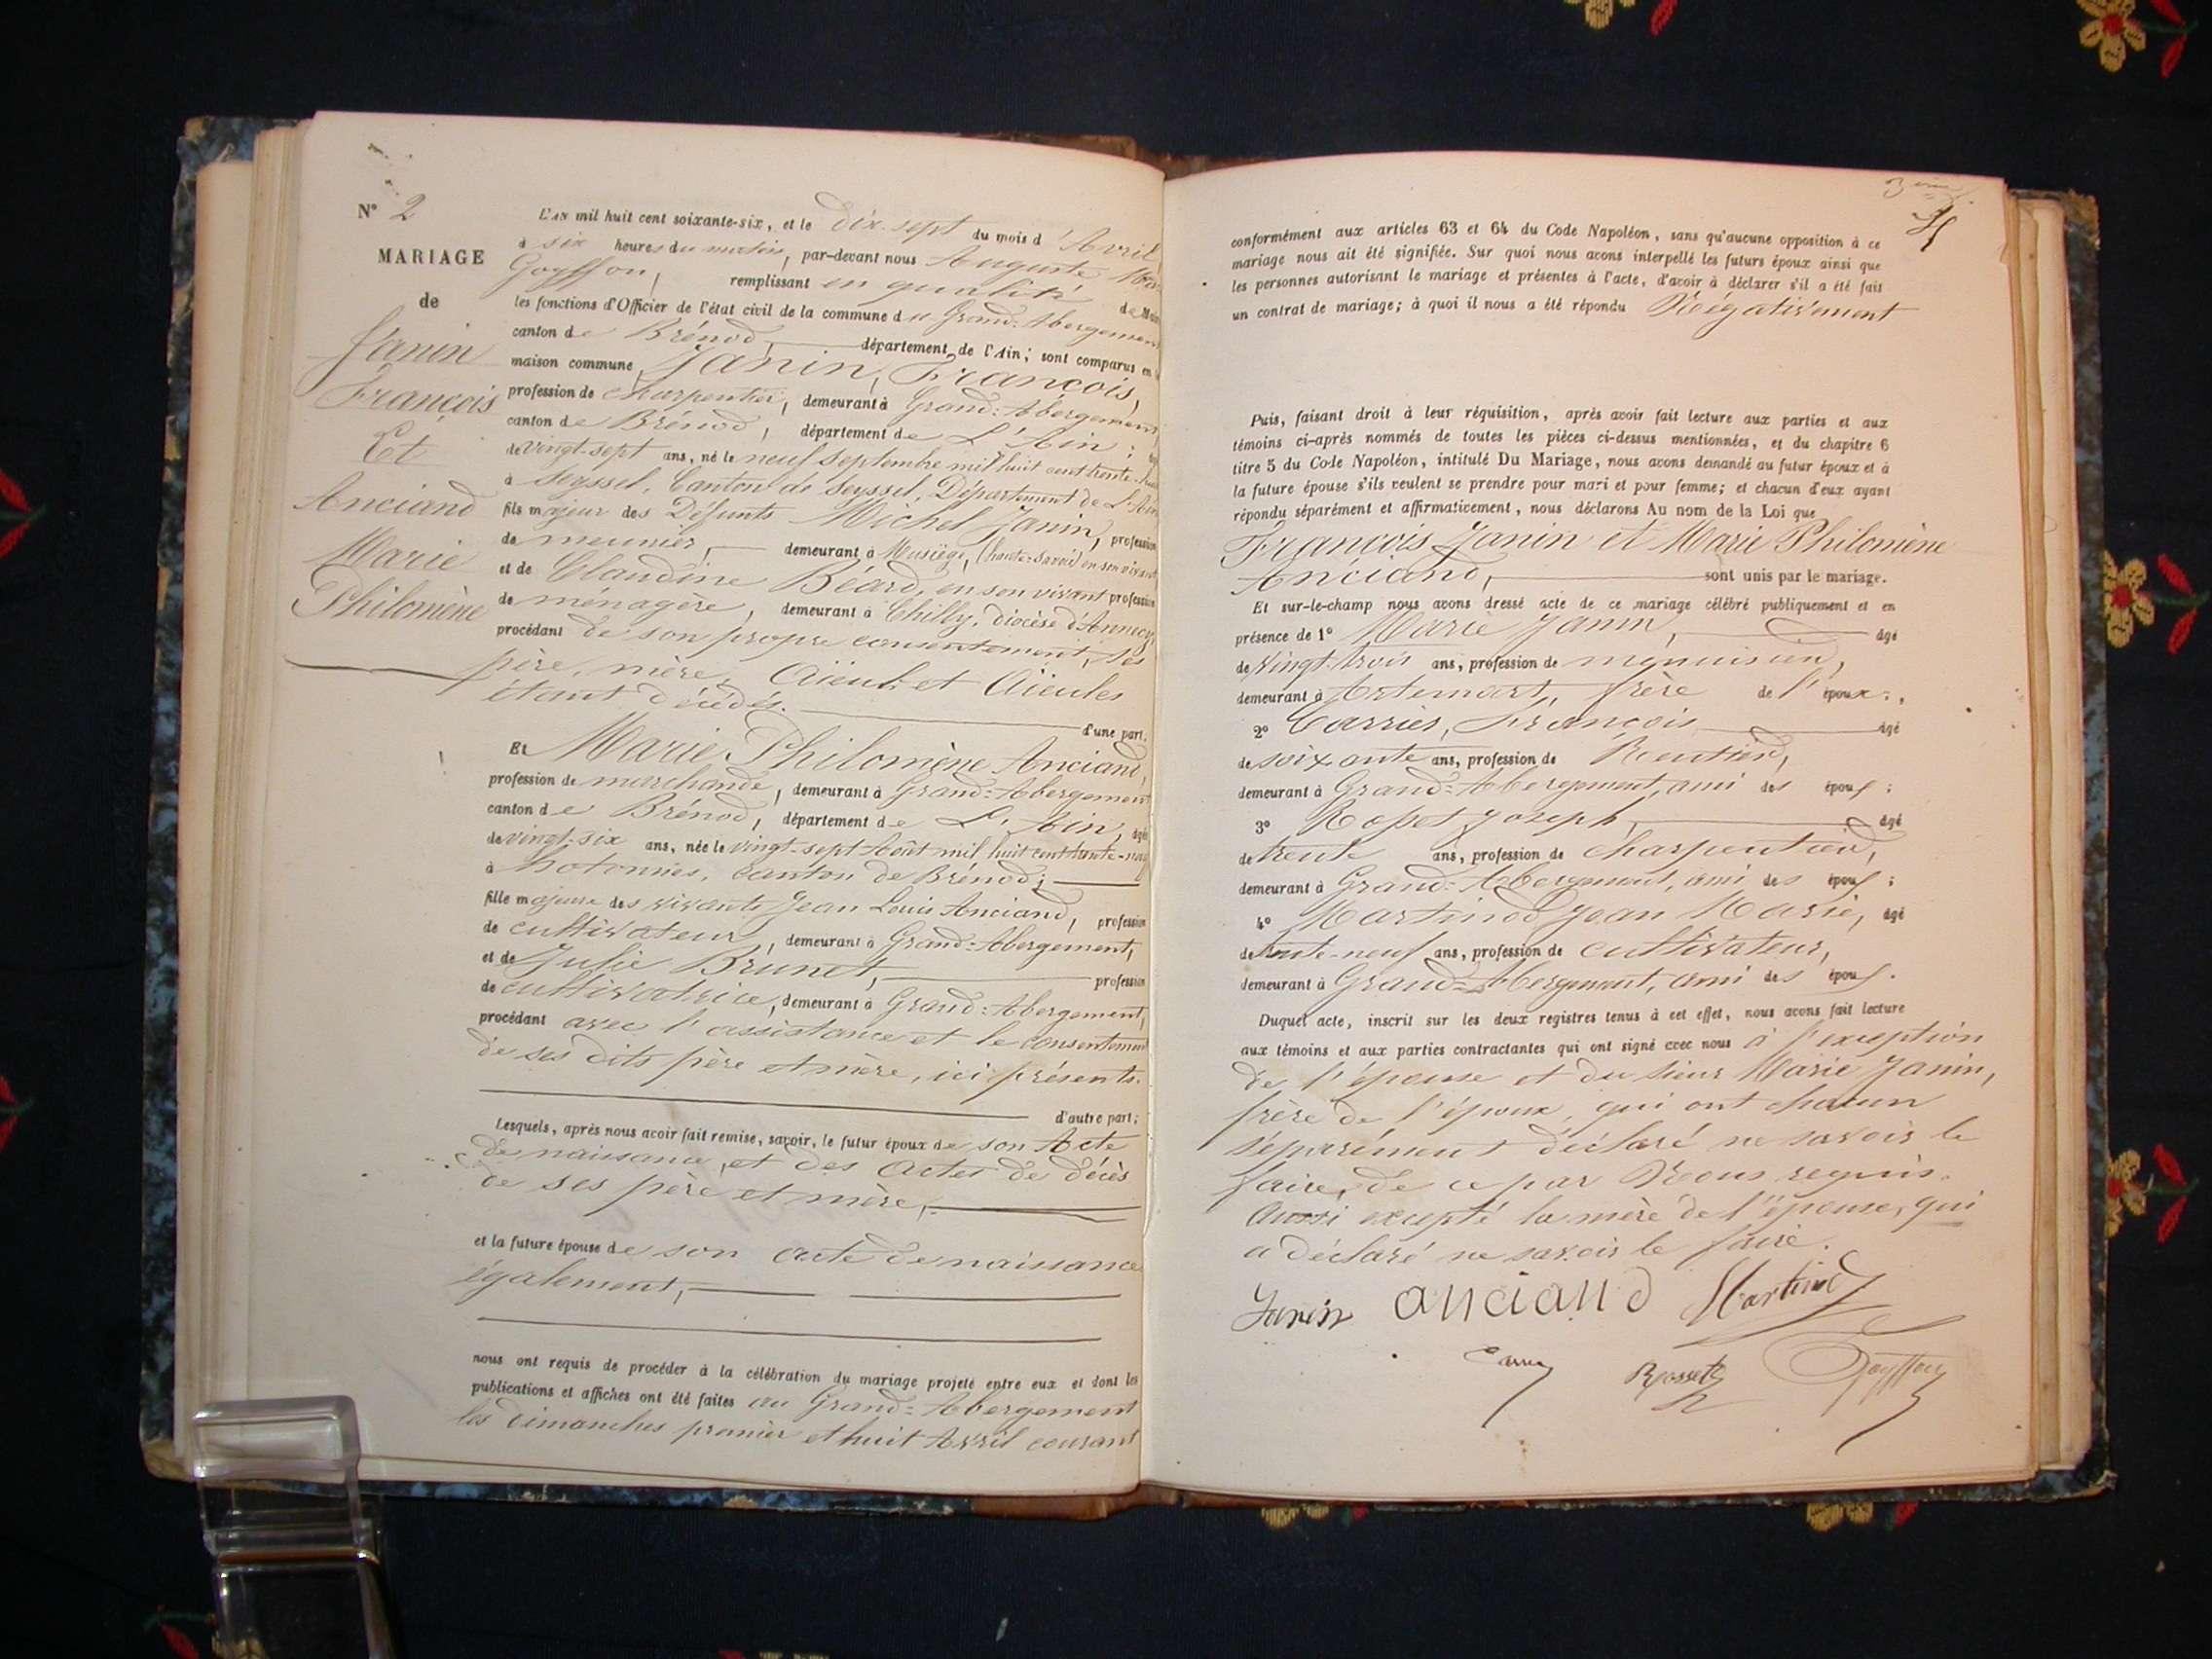 N° 2
MARIAGE
de
Janin
François
Et
Anciand
Marie
Philomène
L'AN mil huit cent soixante-six, et le dix-sept du mois d'Avril
à six heures du matin, par-devant nous Auguste
Goyffon, remplissant en qualité de Maire
les fonctions d'Officier de l'état civil de la commune du Grand-Abergement
canton de Brénod, département de l'Ain; sont comparus en la
maison commune, Janin, François,
profession de charpentier, demeurant à Grand-Abergement,
canton de Brénod, département de L'Ain; âgé
de vingt-sept ans, né le neuf Septembre mil huit cent trente-huit
à Seyssel, Canton de Seyssel, Département de L'Ain
fils majeur des Défunts Michel Janin, profession
de meunier, demeurant à Musiège, (haute-Savoie) en son vivant
et de Claudine Béard, en son vivant profession
de ménagère, demeurant à Chilly, diocèse d'Annecy,
procédant de son propre consentement, ses
père, mère, Aïeuls et Aïeules
étant décédés. d'une part.
Et Marie Philomène Anciand,
profession de marchande, demeurant à Grand-Abergement
canton de Brénod, département de L'Ain, âgée
de vingt-six ans, née le vingt-sept Août mil huit cent trente-neuf
à hotonnes, canton de Brénod;
fille majeure des vivants Jean Louis Anciand, profession
de cultivateur, demeurant à Grand-Abergement,
et de Julie Brunet, profession
de cultivatrice, demeurant à Grand-Abergement,
procédant avec l'assistance et le consentement
de ses dits père et mère, ici présents.
d'autre part;
Lesquels, après nous avoir fait remise, savoir, le futur époux de son Acte
de naissance, et des Actes de décès
de ses père et mère,
et la future épouse de son acte de naissance
également,
nous ont requis de procéder à la célébration du mariage projeté entre eux et dont les
publications et affiches ont été faites au Grand-Abergement
les dimanches premier et huit Avril courant
conformément aux articles 63 et 64 du Code Napoléon, sans qu'aucune opposition à ce
mariage nous ait été signifiée. Sur quoi nous avons interpellé les futurs époux ainsi que
les personnes autorisant le mariage et présentes à l'acte, d'avoir à déclarer s'il a été fait
un contrat de mariage; à quoi il nous a été répondu Négativement
Puis, faisant droit à leur réquisition, après avoir fait lecture aux parties et aux
témoins ci-après nommés de toutes les pièces ci-dessus mentionnées, et du chapitre 6
titre 5 du Code Napoléon, intitulé Du Mariage, nous avons demandé au futur époux et à
la future épouse s'ils veulent se prendre pour mari et pour femme; et chacun d'eux ayant
répondu séparément et affirmativement, nous déclarons Au nom de la Loi que
François Janin et Marie Philomène
Anciand, sont unis par le mariage.
Et sur-le-champ nous avons dressé acte de ce mariage célébré publiquement et en
présence de 1° Marie Janin, âgé
de vingt-trois ans, profession de ménuisier,
demeurant à Artemart, frère de l'époux.,
2° Carrier, François âgé
de soixante ans, profession de Rentier,
demeurant à Grand-Abergement, ami des époux;
3° Rosset Joseph, âgé
de trente ans, profession de charpentier,
demeurant à Grand-Abergement, ami des époux;
4° Martinod Jean Marie, âgé
de trente-neuf ans, profession de cultivateur,
demeurant à Grand-Abergement, ami des époux.
Duquel acte, inscrit sur les deux registres tenus à cet effet, nous avons fait lecture
aux témoins et aux parties contractantes qui ont signé avec nous à l'exception
de l'épouse et du sieur Marie Janin,
frère de l'époux, qui ont chacun
séparément déclaré ne savoir le
faire, de ce par Nous requis.
Aussi excepté la mère de l'épouse, qui
a déclaré ne savoir le faire.
Janin anciand Martinod
Rossetz Goyffon